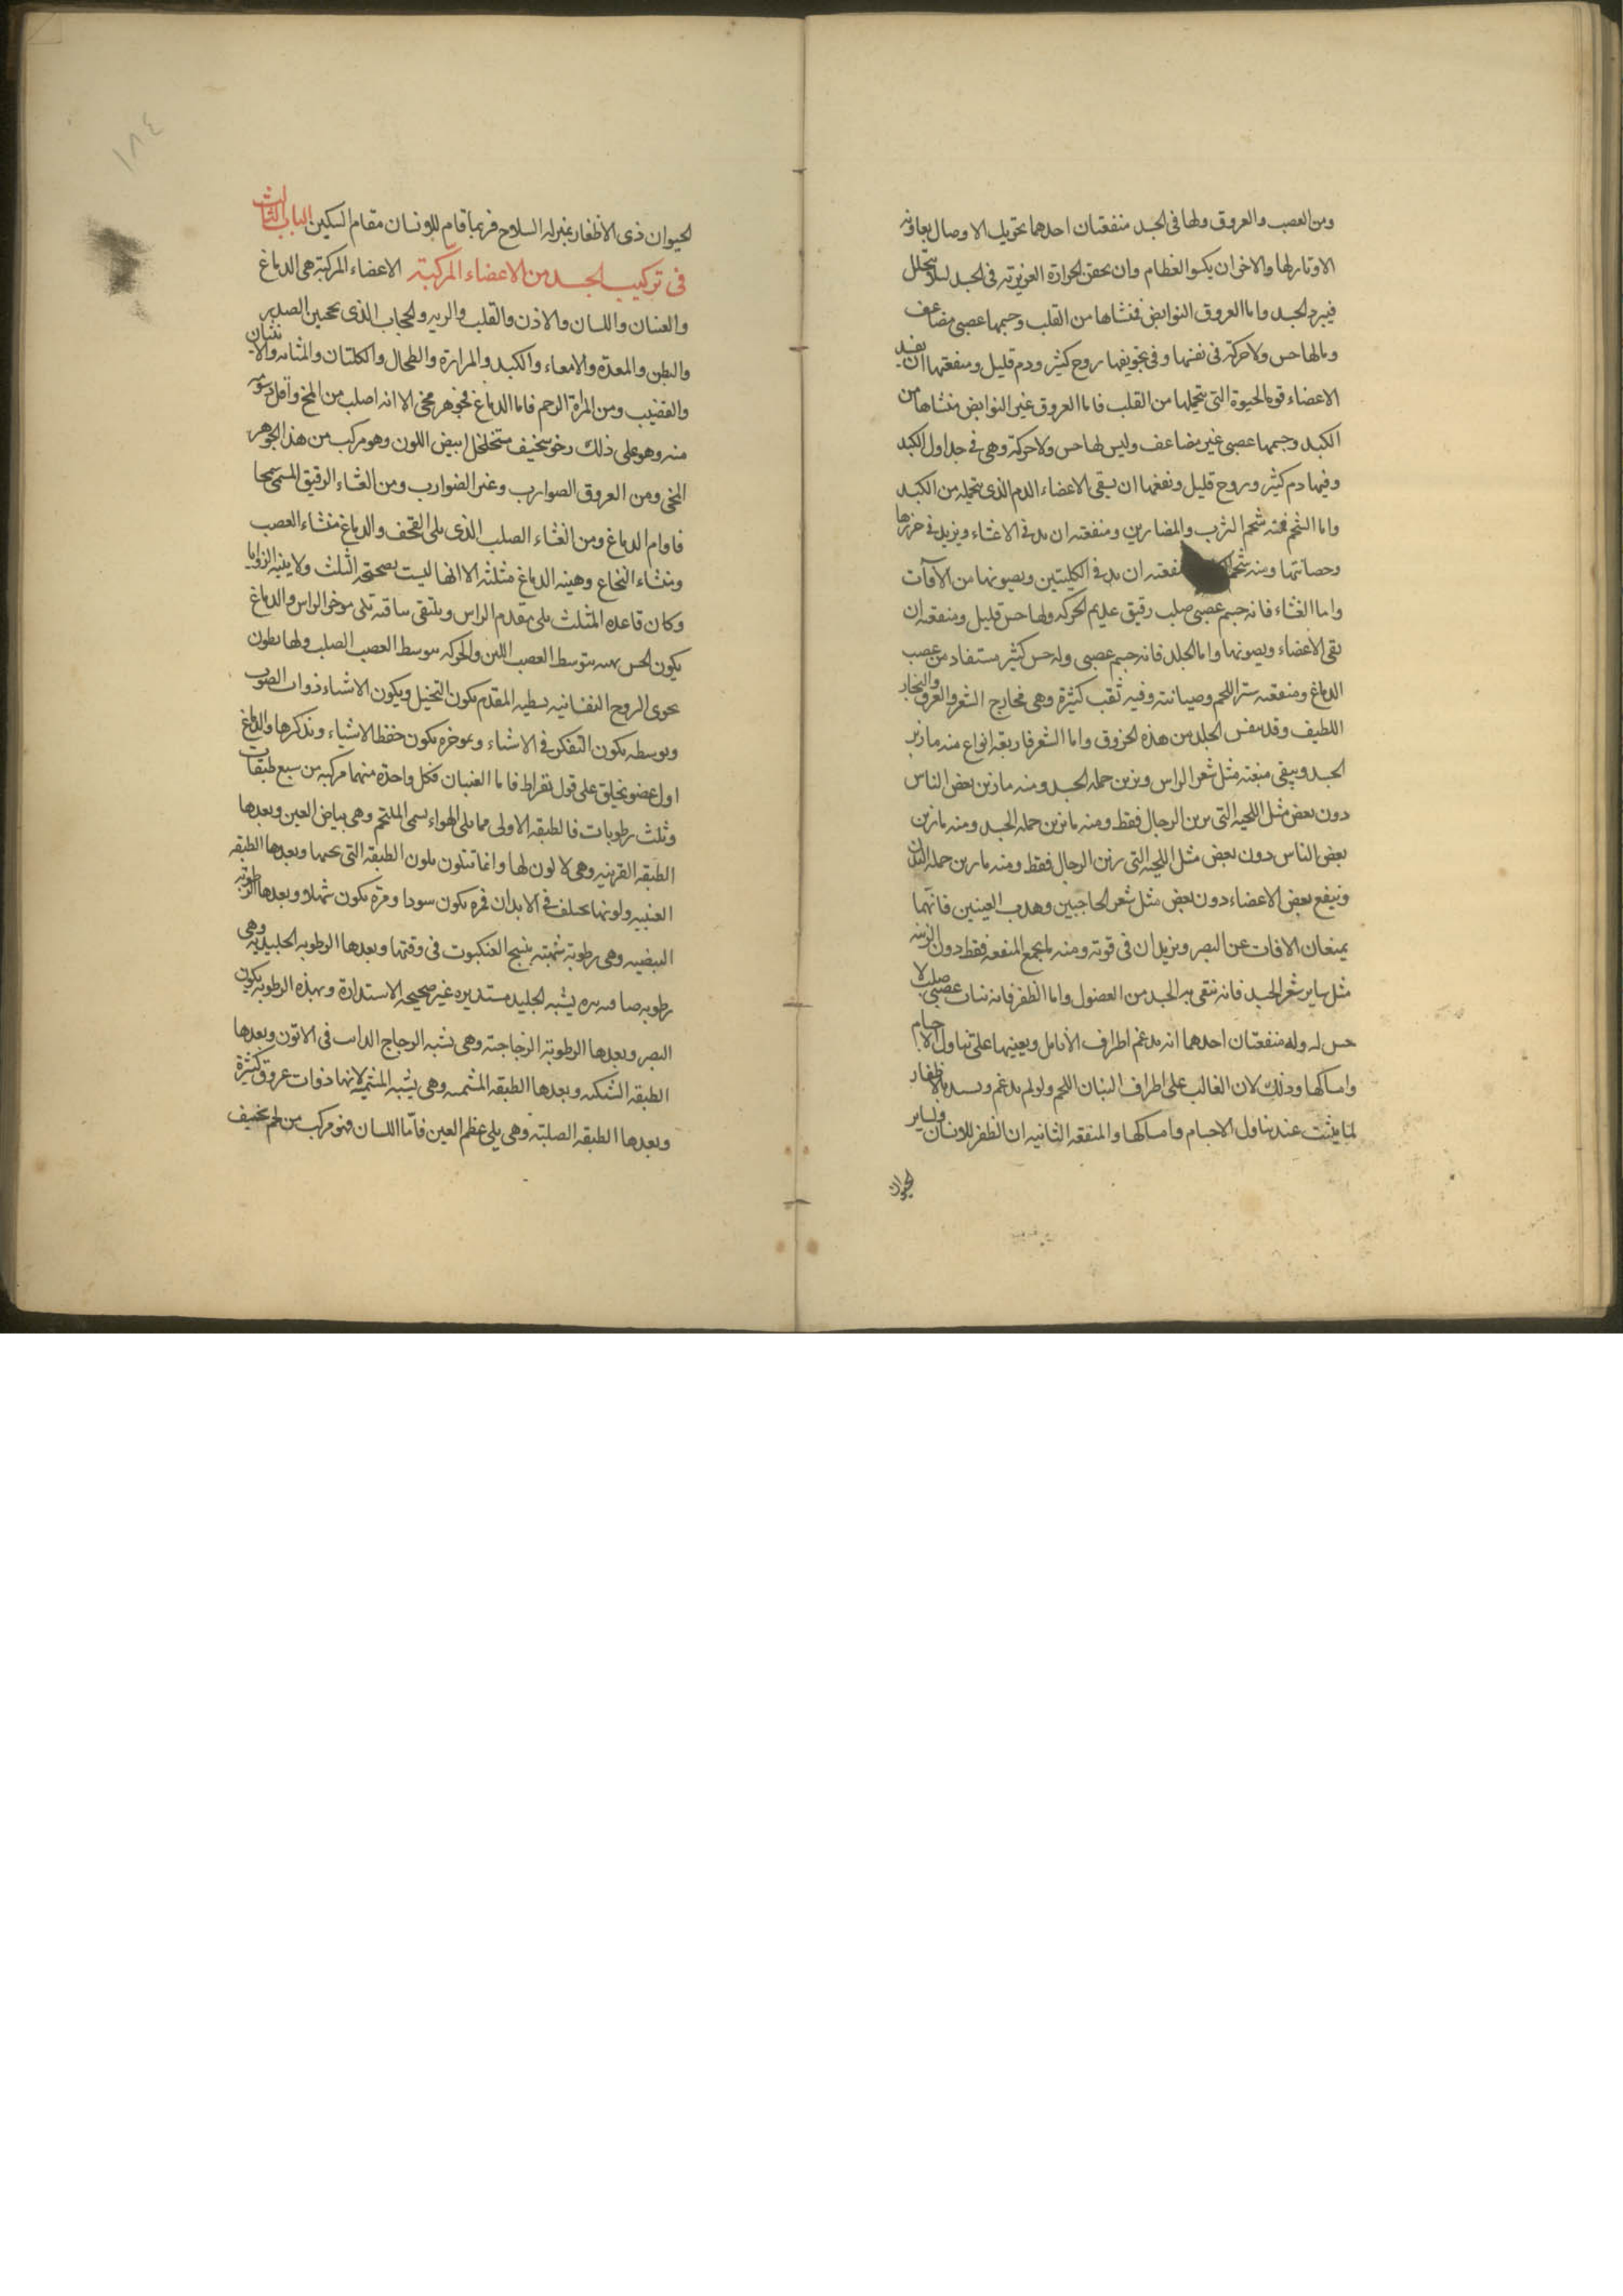 ومن العصب والعروق ولها فى الجسد منفعتان احدهما تحريك الاوصال بمعاونة
الاوتار لها والاخرى ان يكسوا العظام وان تحقن الحرارة الغريزية فى الجسد لئلا تتحلل
فيبرد الجسد واما العروق النوابض فمنشاها من القلب وجسمها عصبى مضاعف
ومالها حس ولا حركة فى نفسها وفى تجويفها روح كثير ودم قليل ومنفعتها ان تفيد
الاعضاء قوة الحيوة التى تتحملها من القلب فاما العروق غير النوابض منشاها من
الكبد وجسمها عصبى غير مضاعف وليس لها حس ولا حركة وهى فى جداول الكبد
وفيها دم كثير وروح قليل ونفعها ان يسقى الاعضاء الدم الذى تتحمله من الكبد
واما الشحم فمنه شحم الثرب والمصارين ومنفعته ان يدفى الاغشاء ويزيد فى حرزها
وحصانتها ومنه شحم منفعته ان يدفى الكليتين ويصونها من الآفات
واما الغشاء فانه جسم عصبى صلب رقيق عديم الحركه ولها حس قليل ومنفعته ان
يقى الاعضاء ويصونها واما الجلد فانه جسم عصبى وله حس كثير مستفاد من عصب
الدماغ ومنفعته ستر اللحم وصيانته وفيه ثقب كثيرة وهى مخارج الشعر والعرق والبخار
اللطيف وقد ينفس الجلد من هذه الخروق واما الشعر فاربعة انواع منه ما يزين
الجسد ويبقى منبته مثل شعر الراس ويزين جمله الجسد ومنه ما يزين بعض الناس
دون بعض مثل اللحيه التى يزين الرجال فقط ومنه ما يزين جمله الجسد ومنه ما يزين
بعض الناس دون بعض مثل اللحية التى يزين الرجال فقط ومنه ما يزين جمله البدن
وينفع بعض الاعضاء دون بعض مثل شعر الحاجبين وهدب العينين فانهما
يمنعان الافات عن البصر ويزيدان فى قوته ومنه ما يجمع المنفعه فقط دون الزينه
مثل ساير شعر الجسد فانه ينقى به الجسد من الفضول واما الظفر فانه نبات عصبى صلب لا
حس له وله منفعتان احدهما انه يدعم اطراف الانامل ويعينها على تناول الاجسام
وامساكها وذلك لان الغالب على اطراف البنان اللحم ولو لم يدعم ويسند بالاظفار
لما يثبت عند تناول الاجسام وامساكها والمنفعه الثانيه ان الظفر للانسان ولساير
الحيوان
الحيوان ذى الاظفار بمنزله السلاح فربما قام للانسان مقام السكين الباب الثالث
فى تركيب الجسد من الاعضاء المركبة الاعضاء المركبة هى الدماغ
والعينان واللسان والاذن والقلب والريه والحجاب الذى يحجز بين الصدر
والبطن والمعدة والامعاء والكبد والمرارة والطحال والكليتان والمثانه والانثيان
والقضيب ومن المراة الرحم فاما الدماغ فجوهر مخى الا انه اصلب من المخ واقل دسومة
منه وهو على ذلك رخو سخيف متخلخل ابيض اللون وهو مركب من هذا الجوهر
المخى ومن العروق الضوارب وغير الضوارب ومن الغشاء الرقيق المسمى سحا
فاوام الدماغ ومن الغشاء الصلب الذى يلى القحف والدماغ منشاء العصب
ومنشاء النخاع وهيئة الدماغ مثلثه الا انها ليست بصحيحة المثلث ولا بينيه الزوايا
وكان قاعدة المثلث يلى مقدم الراس ويلتقى ساقيه يلى موخر الراس والدماغ
يكون الحس منه بتوسط العصب اللين والحركه بتوسط العصب الصلب ولها بطون
تحوى الروح النفسانيه ببطنه المقدم يكون التخيل ويكون الاشياء ذوات الصور
وبوسطه يكون التفكر فى الاشياء وبموخره يكون حفظ الاشياء وتذكرها والدماغ
اول عضو يخلق على قول بقراط فاما العينان فكل واحدة منهما مركبه من سبع طبقات
وثلث رطوبات فالطبقه الاولى مما يلى الهواء يسمى الملتحم وهى بياض العين وبعدها
الطبقه القرنيه وهى لا لون لها وانما تتلون بلون الطبقه التى تحتها وبعدها الطبقه
العنبيه ولونها يختلف فى الابدان فمرة يكون سودا ومرة يكون شهلا وبعدها الرطوبة
البيضيه وهى رطوبة شبيهة بنسج العنكبوت فى رقتها وبعدها الرطوبه الجليديه وهى
رطوبه صافيه نيره يشبه الجليد مستديره غير صحيحه الاستدارة وبهذه الرطوبه يكون
البصر وبعدها الرطوبة الزجاجية وهى يشبه الزجاج الذايب فى الاتون وبعدها
الطبقه الشبكيه وبعدها الطبقه المشيميه وهى يشبه المشيمه لانها ذوات عروق كثيرة
وبعدها الطبقه الصلبة وهى يلى عظم العين فاما اللسان فهو مركب من لحم سخيف
١٨٤